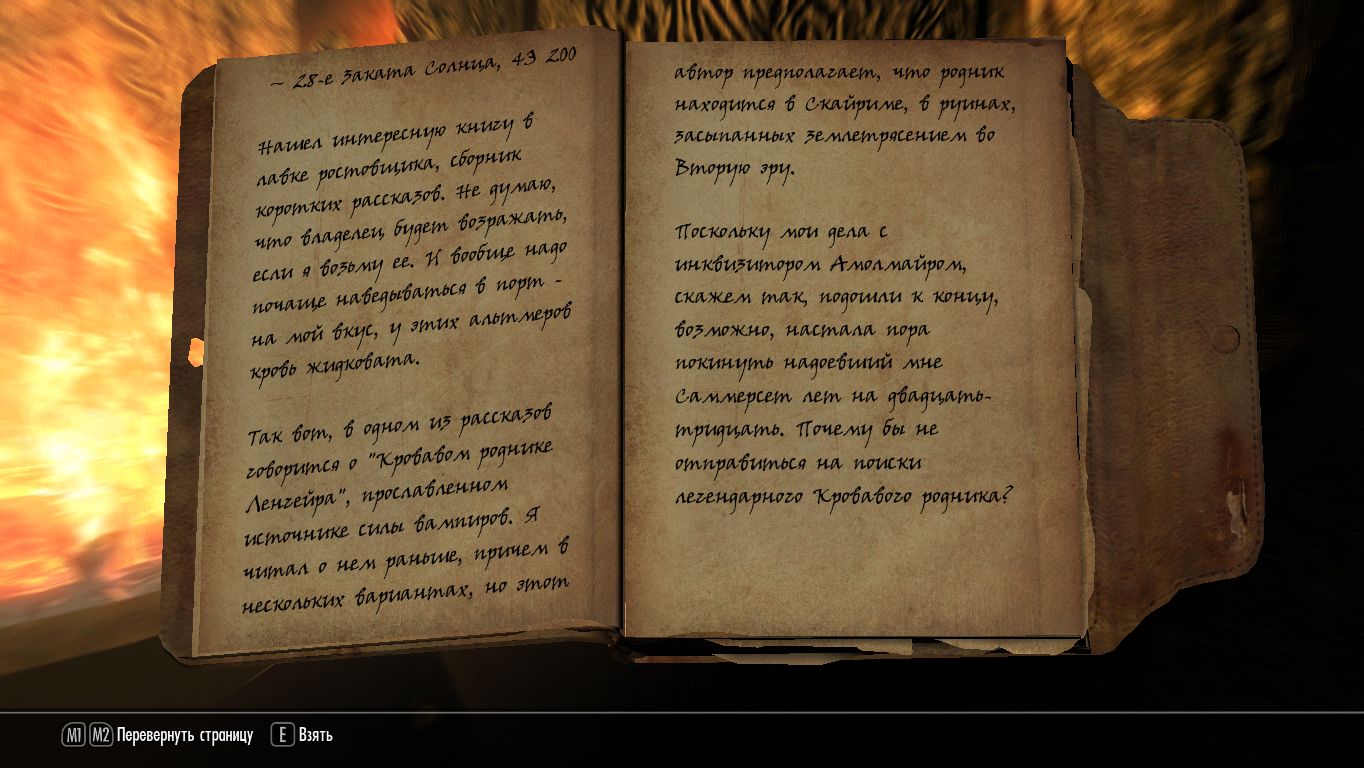 ~ 28-е Заката Солнца, 4Э 200
Нашел интересную книгу в
лавке ростовщика, сборник
коротких рассказов. Не думаю,
что владелец будет возражать,
если я возьму ее. И вообще надо
почаще наведываться в порт -
на мой вкус, у этих альтмеров
кровь жидковата.
Так вот, в одном из рассказов
говорится о "Кровавом роднике
Ленгейра", прославленном
источнике силы вампиров. Я
читал о нем раньше, причем в
нескольких вариантах, но этот
автор предполагает, что родник
находится в Скайриме, в руинах,
засыпанных землетрясением во
Вторую эру.
Поскольку мои дела с
инквизитором Амолмайром,
скажем так, подошли к концу,
возможно, настала пора
покинуть надоевший мне
Саммерсет лет на двадцать-
тридцать. Почему бы не
отправиться на поиски
легендарного Кровавого родника?
M1 M2 Перевернуть страницу E Взять